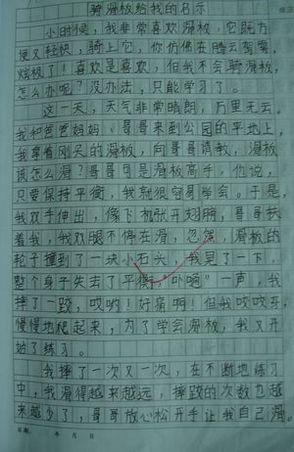 骑滑板给我的启示
小时候，我非常喜欢滑板，它既方
便又轻快，骑上它，你仿佛在腾云驾雾，
炫极了！喜欢是喜欢，但我不会骑滑板，
怎么办呢？没办法，只能学习了。
这一天，天气非常晴朗，万里无云。
我和爸爸妈妈、哥哥来到公园的平地上，
我拿着刚买的滑板，向哥哥请教，滑板
该怎么滑？哥哥可是滑板高手，他说，
只要保持平衡，我就很容易学会。于是，
我双手伸出，像飞机张开翅膀，哥哥扶
着我，我双腿不停在滑，忽然，滑板的
轮子撞到了一块小石头，我晃了一下，
整个身子失去了平衡“扑嗵”一声，我
摔了一跤，哎哟！好痛啊！但我咬咬牙，
慢慢地爬起来，为了学会滑板，我又开
始了练习。
我摔了一次又一次，在不断地练习
中，我滑得越来越远，摔跤的次数也越
来越少了，哥哥放心松开手让我自己滑。
年 月 日